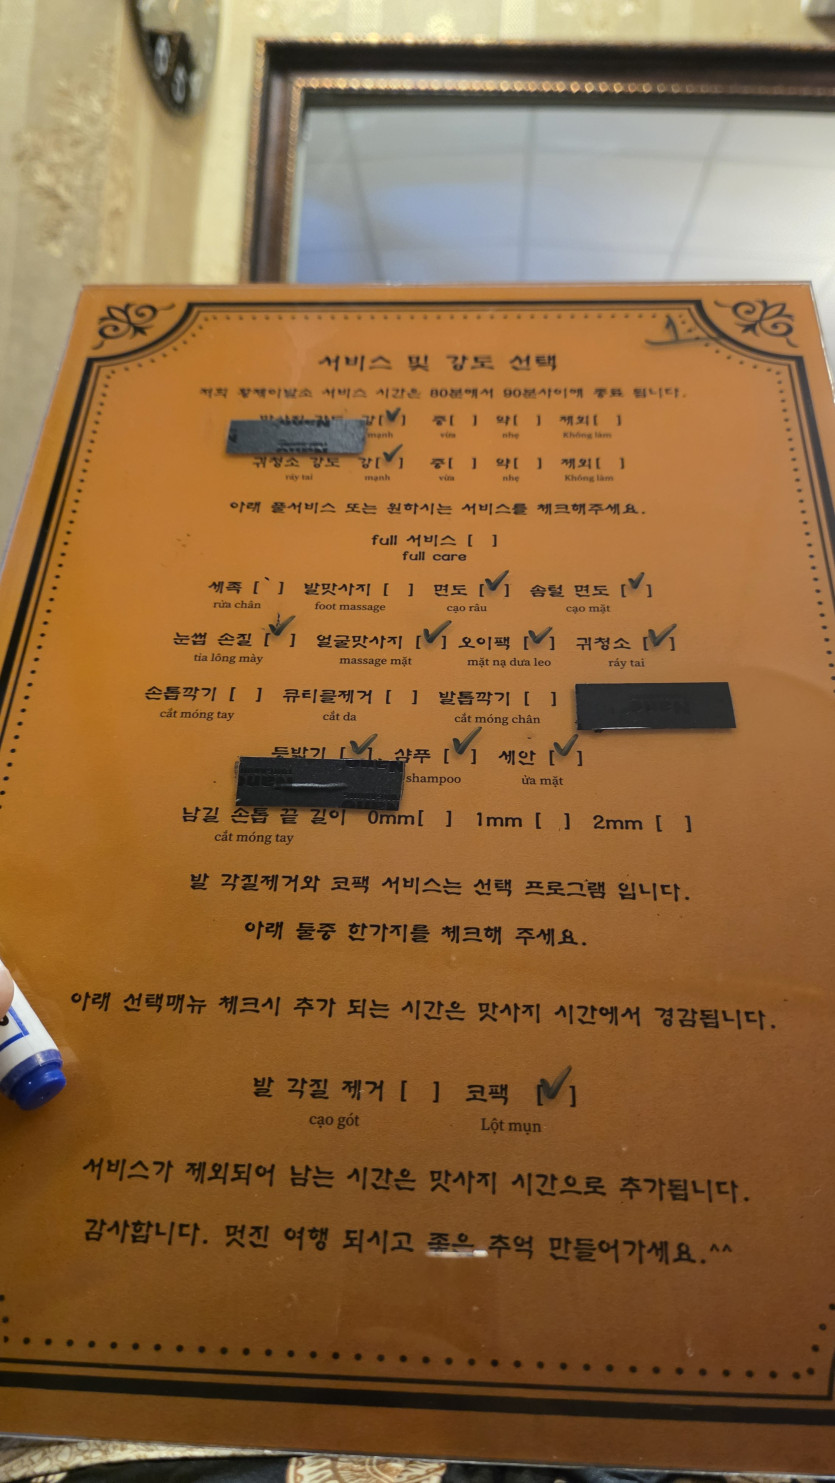 서비스 및 강도 선택
저희 황제이발소 서비스 시간은 80분에서 90분사이에 종료 됩니다.
맛사지 강도 강[✓] 중[ ] 약[ ] 제외[ ]
mạnh vừa nhẹ Không làm
귀청소 강도 강[✓] 중[ ] 약[ ] 제외[ ]
ráy tai mạnh vừa nhẹ Không làm
아래 풀서비스 또는 원하시는 서비스를 체크해주세요.
full 서비스 [ ]
full care
세족 [ ] 발맛사지 [ ] 면도 [✓] 솜털 면도 [✓]
rửa chân foot massage cạo râu cạo mặt
눈썹 손질 [✓] 얼굴맛사지 [✓] 오이팩 [✓] 귀청소 [✓]
tỉa lông mày massage mặt mặt nạ dưa leo ráy tai
손톱깎기 [ ] 큐티클제거 [ ] 발톱깎기 [ ]
cắt móng tay cắt da cắt móng chân
등밟기 [✓]. 샴푸 [✓] 세안 [✓]
shampoo ửa mặt
남길 손톱 끝 길이 0mm[ ] 1mm [ ] 2mm [ ]
cắt móng tay
발 각질제거와 코팩 서비스는 선택 프로그램 입니다.
아래 둘중 한가지를 체크해 주세요.
아래 선택매뉴 체크시 추가 되는 시간은 맛사지 시간에서 경감됩니다.
발 각질 제거 [ ] 코팩 [✓]
cạo gót Lột mụn
서비스가 제외되어 남는 시간은 맛사지 시간으로 추가됩니다.
감사합니다. 멋진 여행 되시고 좋은 추억 만들어가세요.^^